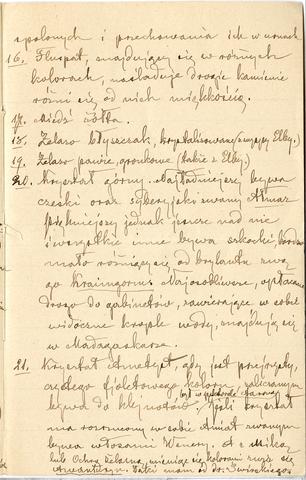 spalonych i przechowania ich w urnach
16. Fluspat, znajdujący się w różnych
kolorach, naśladuje drogie kamienie
różni się od nich miękkością.
17. Miedź żółta.
18. Żelazo błyszczak, krystalizowane z wyspy Elby.
19. Żelazo pawie, gronkowe (także z Elby.)
20. Kryształ górny. Najładniejszy bywa
czeski oraz syberyjski zwany Almaz
piękniejszy jednak jeszcze nad nie
i wszystkie inne bywa szkocki, bardzo
mało różniący się od brylantu zwa-
go Kraimgorus. Najosobliwsze,
drogo do gabinetów, zawierające w sobie
widoczne krople wody, znajdują się
w Madagaskarze.
21. Kryształ Ametyst, gdy jest przejrzysty,
czystego fioletowego koloru, zaliczanym
bywa do klejnotów. Jeśli kryształ
ma rozrzucony w sobie Amiat zwanym
bywa włosami Wenery. A z Miką
lub Ochrą żelazną, mieniąc się kolorami zwie się
Awanturyn. Takie mam od dr.